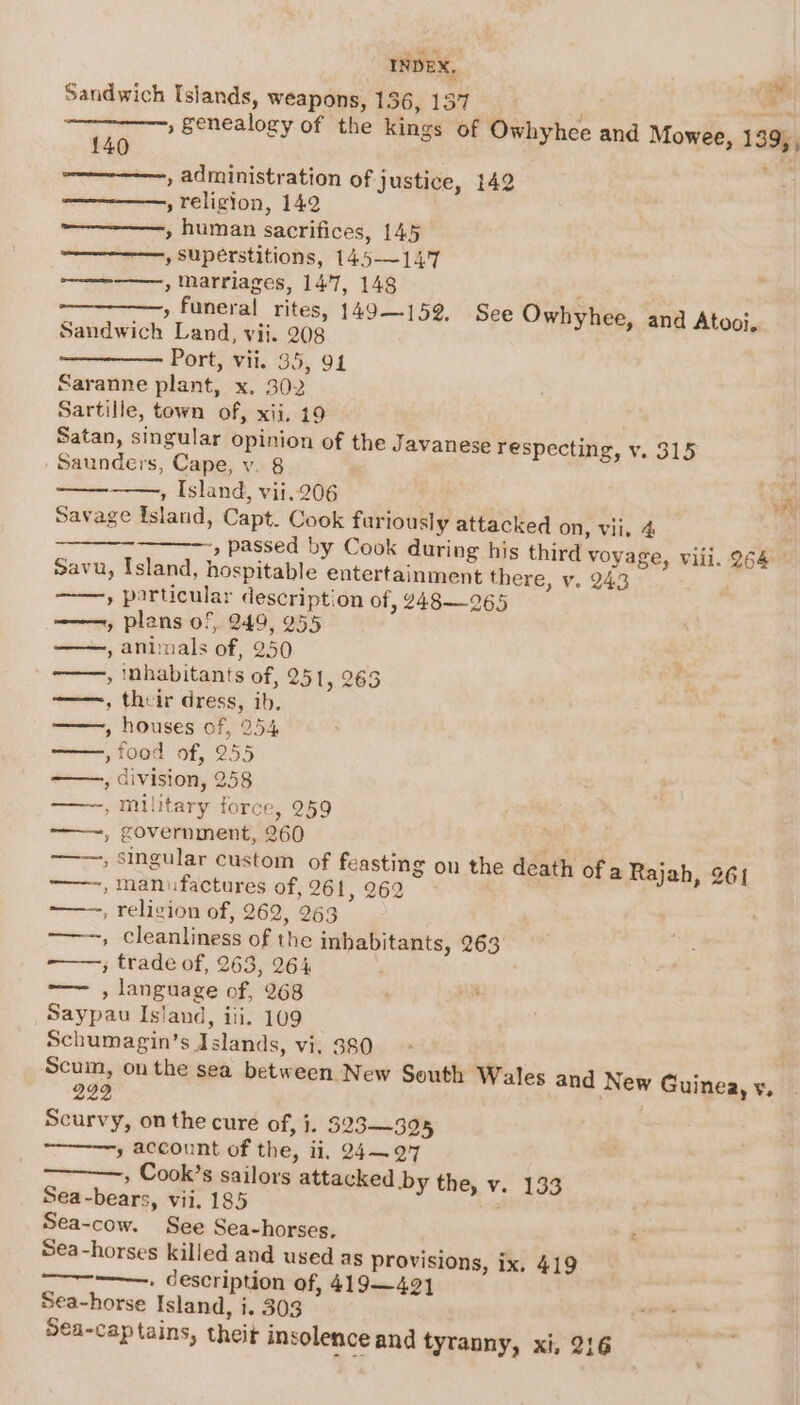 INDEX.
Sandwich Islands, weapons, 136, 137
————, genealogy of the kings of Owhyhee and Mowee, 139,
140
————, administration of justice, 142
————, religion, 142
————, human sacrifices, 145
————, superstitions, 145—147
————, marriages, 147, 148
————, funeral rites, 149—152. See Owhyhee, and Atooi.
Sandwich Land, vii. 208
———— Port, vii. 35, 91
Saranne plant, x. 302
Sartille, town of, xii. 19
Satan, singular opinion of the Javanese respecting, v. 315
Saunders, Cape, v. 8
————, Island, vii. 206
Savage Island, Capt. Cook furiously attacked on, vii. 4
————, passed by Cook during his third voyage, viii. 264
Savu, Island, hospitable entertainment there, v. 243
——, particular description of, 248—265
——, plans of, 249, 255
——, animals of, 250
——, inhabitants of, 251, 263
——, their dress, ib.
——, houses of, 254
——, food of, 255
——, division, 258
——, military force, 259
——, government, 260
——, singular custom of feasting on the death of a Rajah, 261
——, manufactures of, 261, 262
——, religion of, 262, 263
——, cleanliness of the inhabitants, 263
——, trade of, 263, 264
—— , language of, 268
Saypau Island, iii. 109
Schumagin's Islands, vi. 380
Scum, on the sea between New South Wales and New Guinea, v.
222
Scurvy, on the cure of, i. 323—325
———, account of the, ii. 24—27
———, Cook's sailors attacked by the, v. 133
Sea-bears, vii. 185
Sea-cow. See Sea-horses.
Sea-horses killed and used as provisions, ix. 419
————, description of, 419—421
Sea-horse Island, i. 303
Sea-captains, their insolence and tyranny, xi. 216